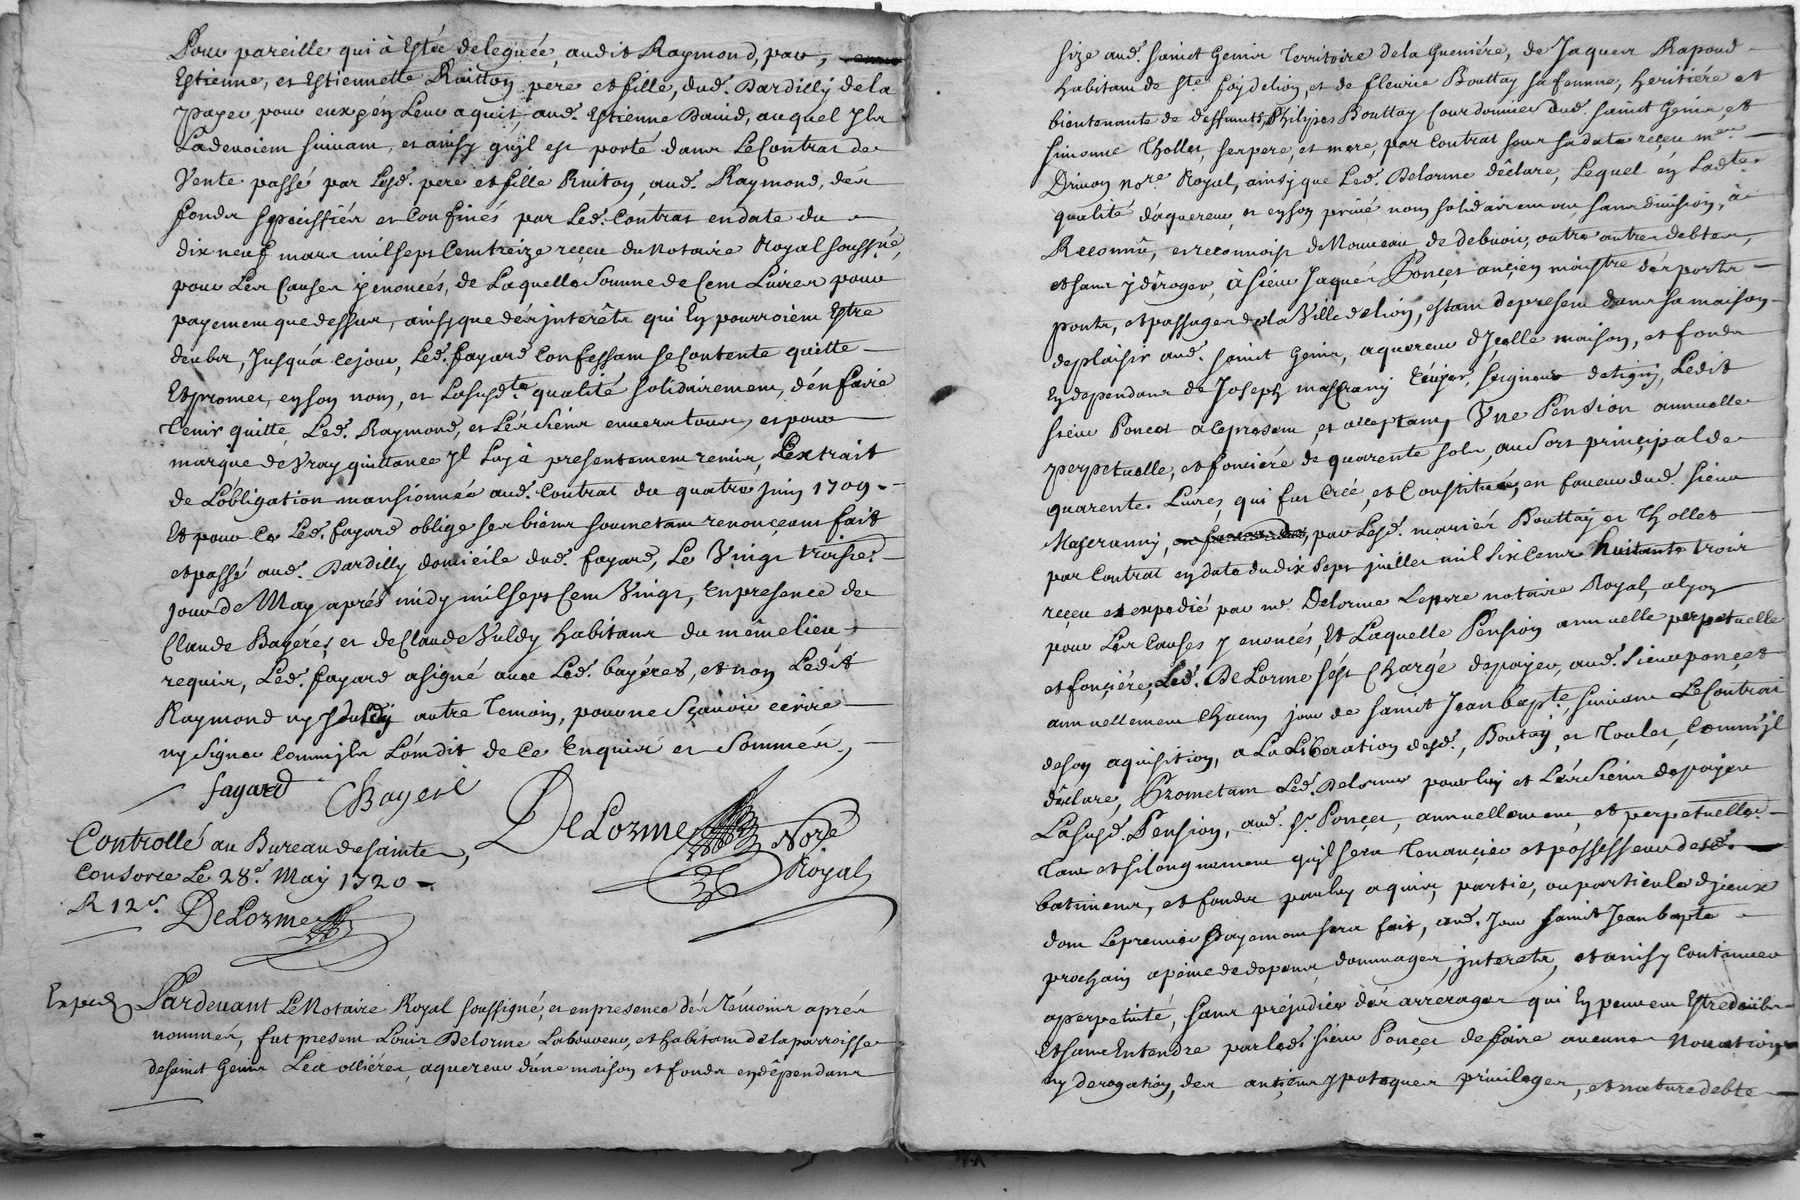 Pour pareille qui à Estée deleguée, audit Raymond, par,
Estienne, et Estiennette Ruitton pere et fille, dud. Dardilly de la
payer pour eux, en Leur aquit, aud. Estienne David, auquel ylz
La devoient suivant, et ainsy qu'yl est porté dans Le Contrat de
Vente passé par Lesd. pere et fille Ruiton, aud. Raymond, des
fonds speciffiés et Confinés par Led. Contrat en date du
dix neuf mars mil sept Cent treize reçeu du Notaire Royal soussné,
pour Les Causes y enoncés, de Laquelle Somme de Cent Livres pour
payement que dessus, ainsy que des interêts qui En pourroient Estre
deubs, Jusqu'à ce jour, Led. fayard Confessant se Contente quitte
Et promet, en son nom, et La susd.te qualité solidairement, d'en faire
tenir quitte Led. Raymond, et Les siens envers tous, et pour
marque de Vray quittance yl Luy à presentement remis, L'extrait
de L'obligation mansionnée aud. Contrat du quatre juin 1709.
Et pour Ce Led. fayard oblige ses biens soumetant renonçeant fait
et passé aud. Dardilly domicile dud. fayard, Le Vingt troisie.
jour de May aprés midy mil sept Cent Vingt, En presence de
Claude Bayéres, et de Claude Vuldy habitans du même lieu
requis, Led. fayard a signé avec Led. bayéres, et non Ledit
Raymond ny Vuldy autre temoin, pour ne Sçavoir ecrire
ny signer Comm'ylz L'ont dit de Ce Enquis et Sommés,
fayard CBayere
DeLorme Nore.
Royal
Controllé au Bureau de sainte
Consorce Le 28e. May 1720
R 12s. DeLorme
Exped. Pardevant Le Notaire Royal soussigné, et en presence des témoins aprés
nommés, fut present Louis Delorme Laboureur, et habitant de la parroisse
de saint Genis Les ollières, aquereur d'une maison et fonds en dêpendans
size aud. saint Genis territoire de la Gueniére, de Jaques Rapoud
habitant de Ste foy de lion, et de fleurie Bouttay sa femme, heritiére et
bientenante de deffunts, Philipes Bouttay Courdonnier dud. saint Genis, et
simonne Thollet, ses pere, et mere, par Contrat sous sa date reçeu me.
nore. Royal, ainsy que Led. Delorme dêclare, Lequel en Lad.te
qualité d'aquereur et en son privé nom solidairement sans division, à
Reconnû, et reconnoist de Nouveau de debvoir, outre autres debtes,
et sans y dêroger, à sieur Jaques Ponçet ancien maistre des ports
ponts, et passages de la Ville de lion, estant de present dans sa maison
de plaisir aud. saint Genis, aquereur d'yçelle maison, et fonds
En dependans de Joseph mascrany Ecuyer, seigneur de tigny, Ledit
sieur Poncet a Ce present, et acceptant, Une Pension annuelle
perpetuelle, et fonciére de quarente sols, au sort principal de
quarente Livres, qui fut Créé, et Constitué, en faveur dud. sieur
Mascranny, par Lesd. mariés Bouttay et Thollet
par Contrat en date du dix sept juillet mil six Cent huitante trois
reçeu et expedié par me. Delorme Le pere notaire Royal, a lyon
pour Les Causes y enoncés, Et Laquelle Pension annuelle perpetuelle
et fonçiére, Led. DeLorme s'est Chargé de payer, aud. sieur ponçet
annuellement Chacun jour de saint Jean bapte., suivant Le Contrat
de son aquisition, a La Liberation desd., Boutay, et Toulet, Comm'yl
dêclare, Prometant Led. Delorme pour luy et Les siens de payer
La susd. Pension, aud. sr. Ponçet, annuellement, et perpetuelle.
Tant et si longuement qu'yl sera Tenançier et possesseur desd.
batimens, et fonds par luy aquis, partie, ou particule d'yceux
dont Le premier Payement sera fait, aud. Jour saint Jean bapte
prochain a peine de depens dommages, interets, et ainsy Continuer
a perpetuité, sans préjudice des arrerages qui En peuvent Estre deübs
Et sans Entendre par led. sieur Ponçet de faire aucune Novation
ny derogation, des antiens ypoteques privileges, et nature debte